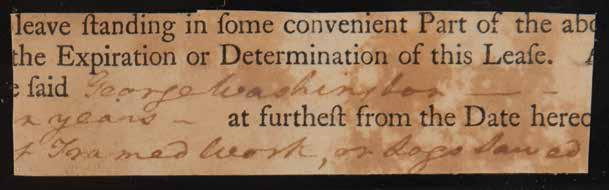 leave ſtanding in ſome convenient Part of the abo
the Expiration or Determination of this Leaſe. A
e ſaid George Washington — -
n years - at furtheſt from the Date hereo
f Framed Work, or Logs Sawed